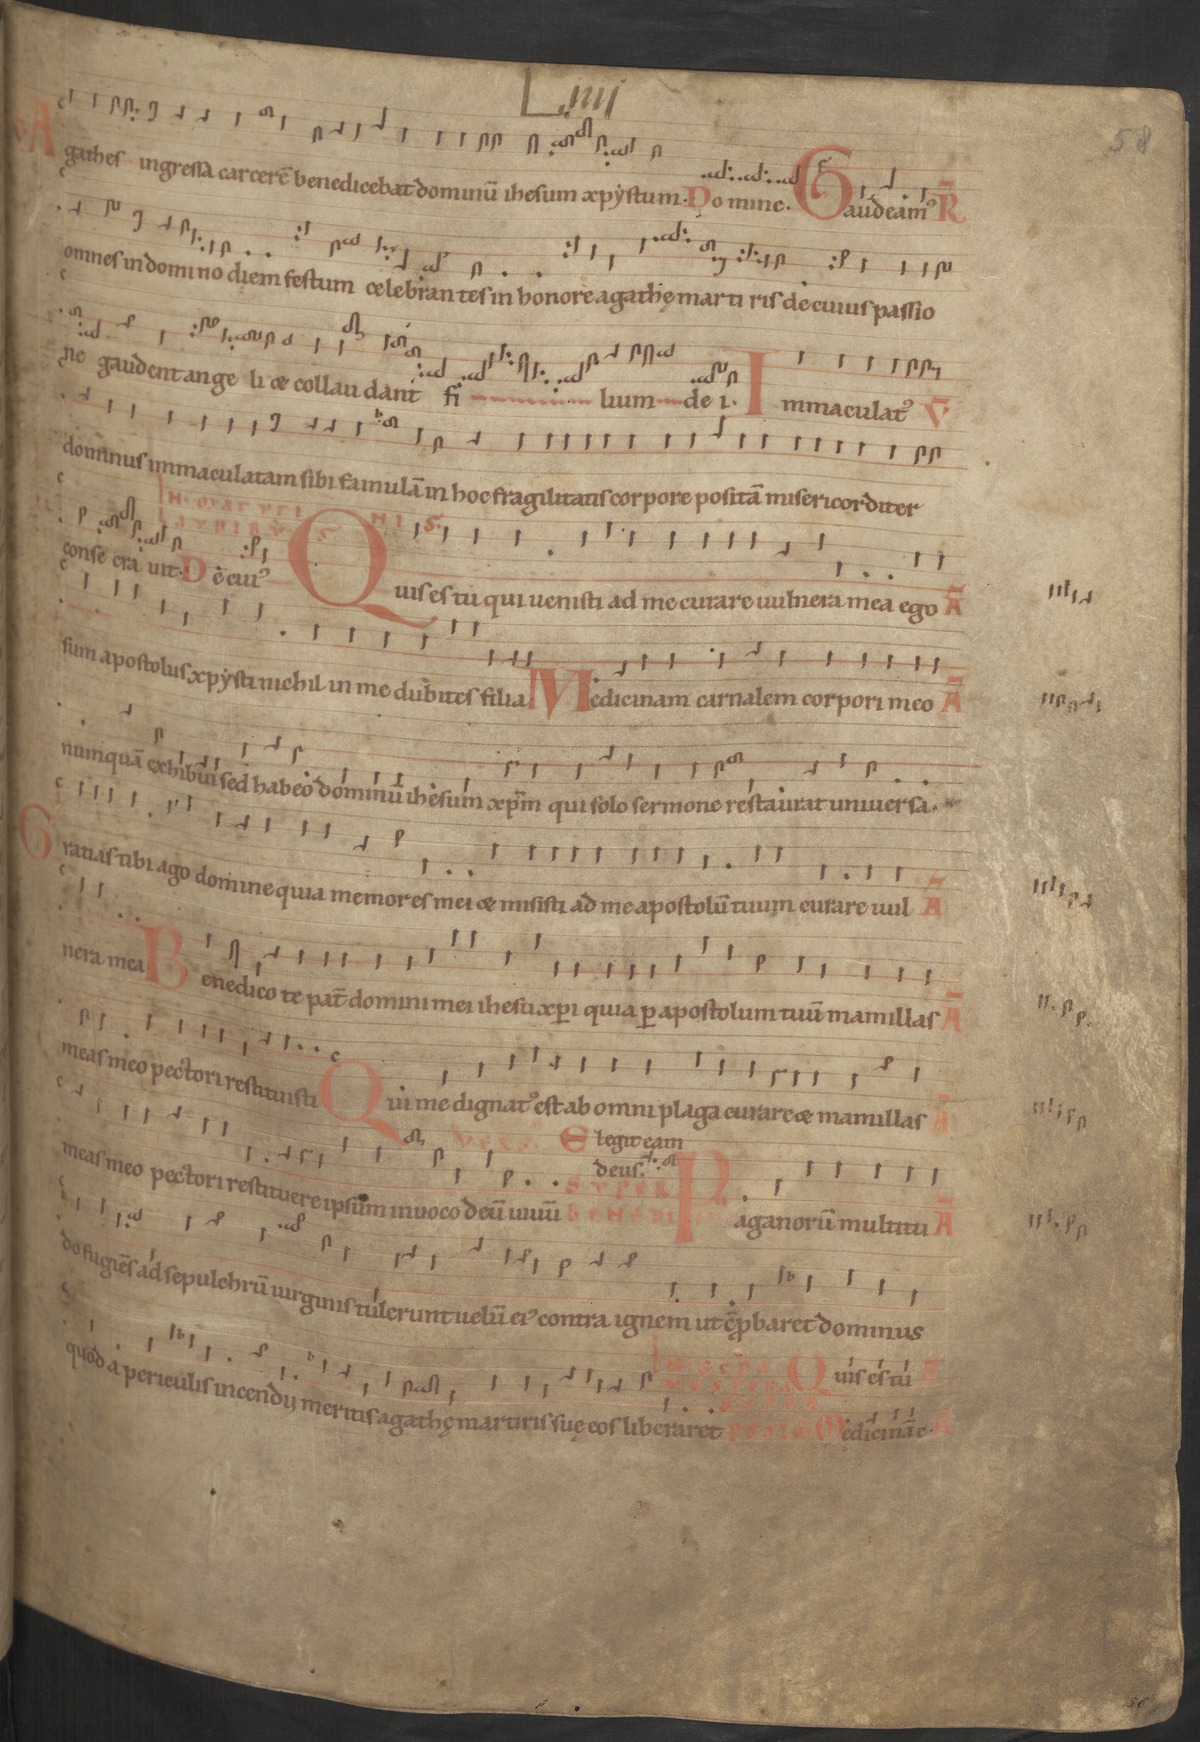 Liiii
58
Agathes ingressa carcerē benedicebat dominū ihesum xpystum. Domine. Gaudeamꝰ R̄
omnes in domino diem festum celebrantes in honore agathę martiris de cuius passio
ne gaudent angeli & collaudant filium dei. Immaculatꝰ V̄
dominus immaculatam sibi famulā in hoc fragilitatis corpore positā misericorditer
consecrauit. De cuiꝰ Quis es tu qui uenisti ad me curare uulnera mea ego Ā
sum apostolus xpysti nichil in me dubites filia Medicinam carnalem corpori meo Ā
numquā exhibui sed habeo dominū ihesum xp̄m qui solo sermone restaurat uniuersa.
Gratias tibi ago domine quia memor es mei & misisti ad me apostolū tuum curare uul Ā
nera mea Benedico te pat̄ domini mei ihesu xp̄i quia ꝑ apostolum tuū mamillas Ā
meas meo pectori restituisti Qui me dignatꝰ est ab omni plaga curare & mamillas Ā
meas meo pectori restituere ipsum inuoco deū uiuū Elegit eam
deus. SUPER Paganorū multitu Ā
do fugiēs ad sepulchrū uirginis tulerunt uelū eiꝰ contra ignem ut cōprobaret dominus
quod a periculis incendij meritis agathę martiris suę eos liberaret Quis es tu Ā
Medicinā c. Ā